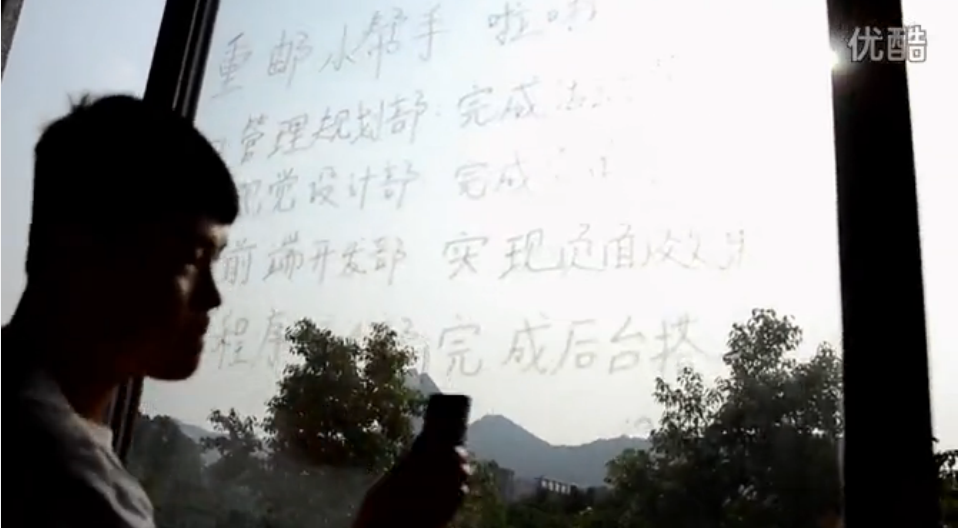 重邮小帮手 啦啦
管理规划部：完成
视觉设计部 完成
前端开发部 实现页面效
程序 部完成后台搭
优酷